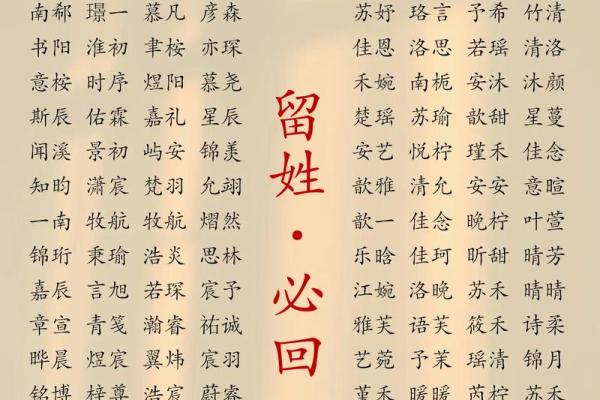 南郗 璟一 慕凡 彦森
书阳 淮初 聿桉 亦琛
意桉 时序 煜阳 慕尧
斯辰 佑霖 嘉礼 星辰
闻溪 景初 屿安 锦羡
知昀 潇宸 梵羽 允翊
一南 牧航 牧航 熠然
锦珩 秉瑜 浩炎 思林
嘉辰 言旭 若琛 宸予
章宣 青笺 瀚睿 祐诚
晔晨 煜宸 翼炜 宸羽
铭博 梓尊 浩宸 蔚睿
留姓·必回
苏妤 珞言 予希 竹清
佳恩 洛思 若瑶 清洛
禾婉 南栀 安沐 沐颜
楚瑶 苏瑜 歆甜 星蔓
安艺 悦柠 瑾禾 佳念
歆雅 清允 安安 意暄
歆一 佳念 晚柠 叶萱
乐晗 佳珂 昕甜 晴芳
江婉 洛晚 苏禾 晴晴
雅芙 语芙 筱禾 诗柔
艺苑 予茉 瑶清 锦月
堇禾 暖暖 芮柠 苏禾